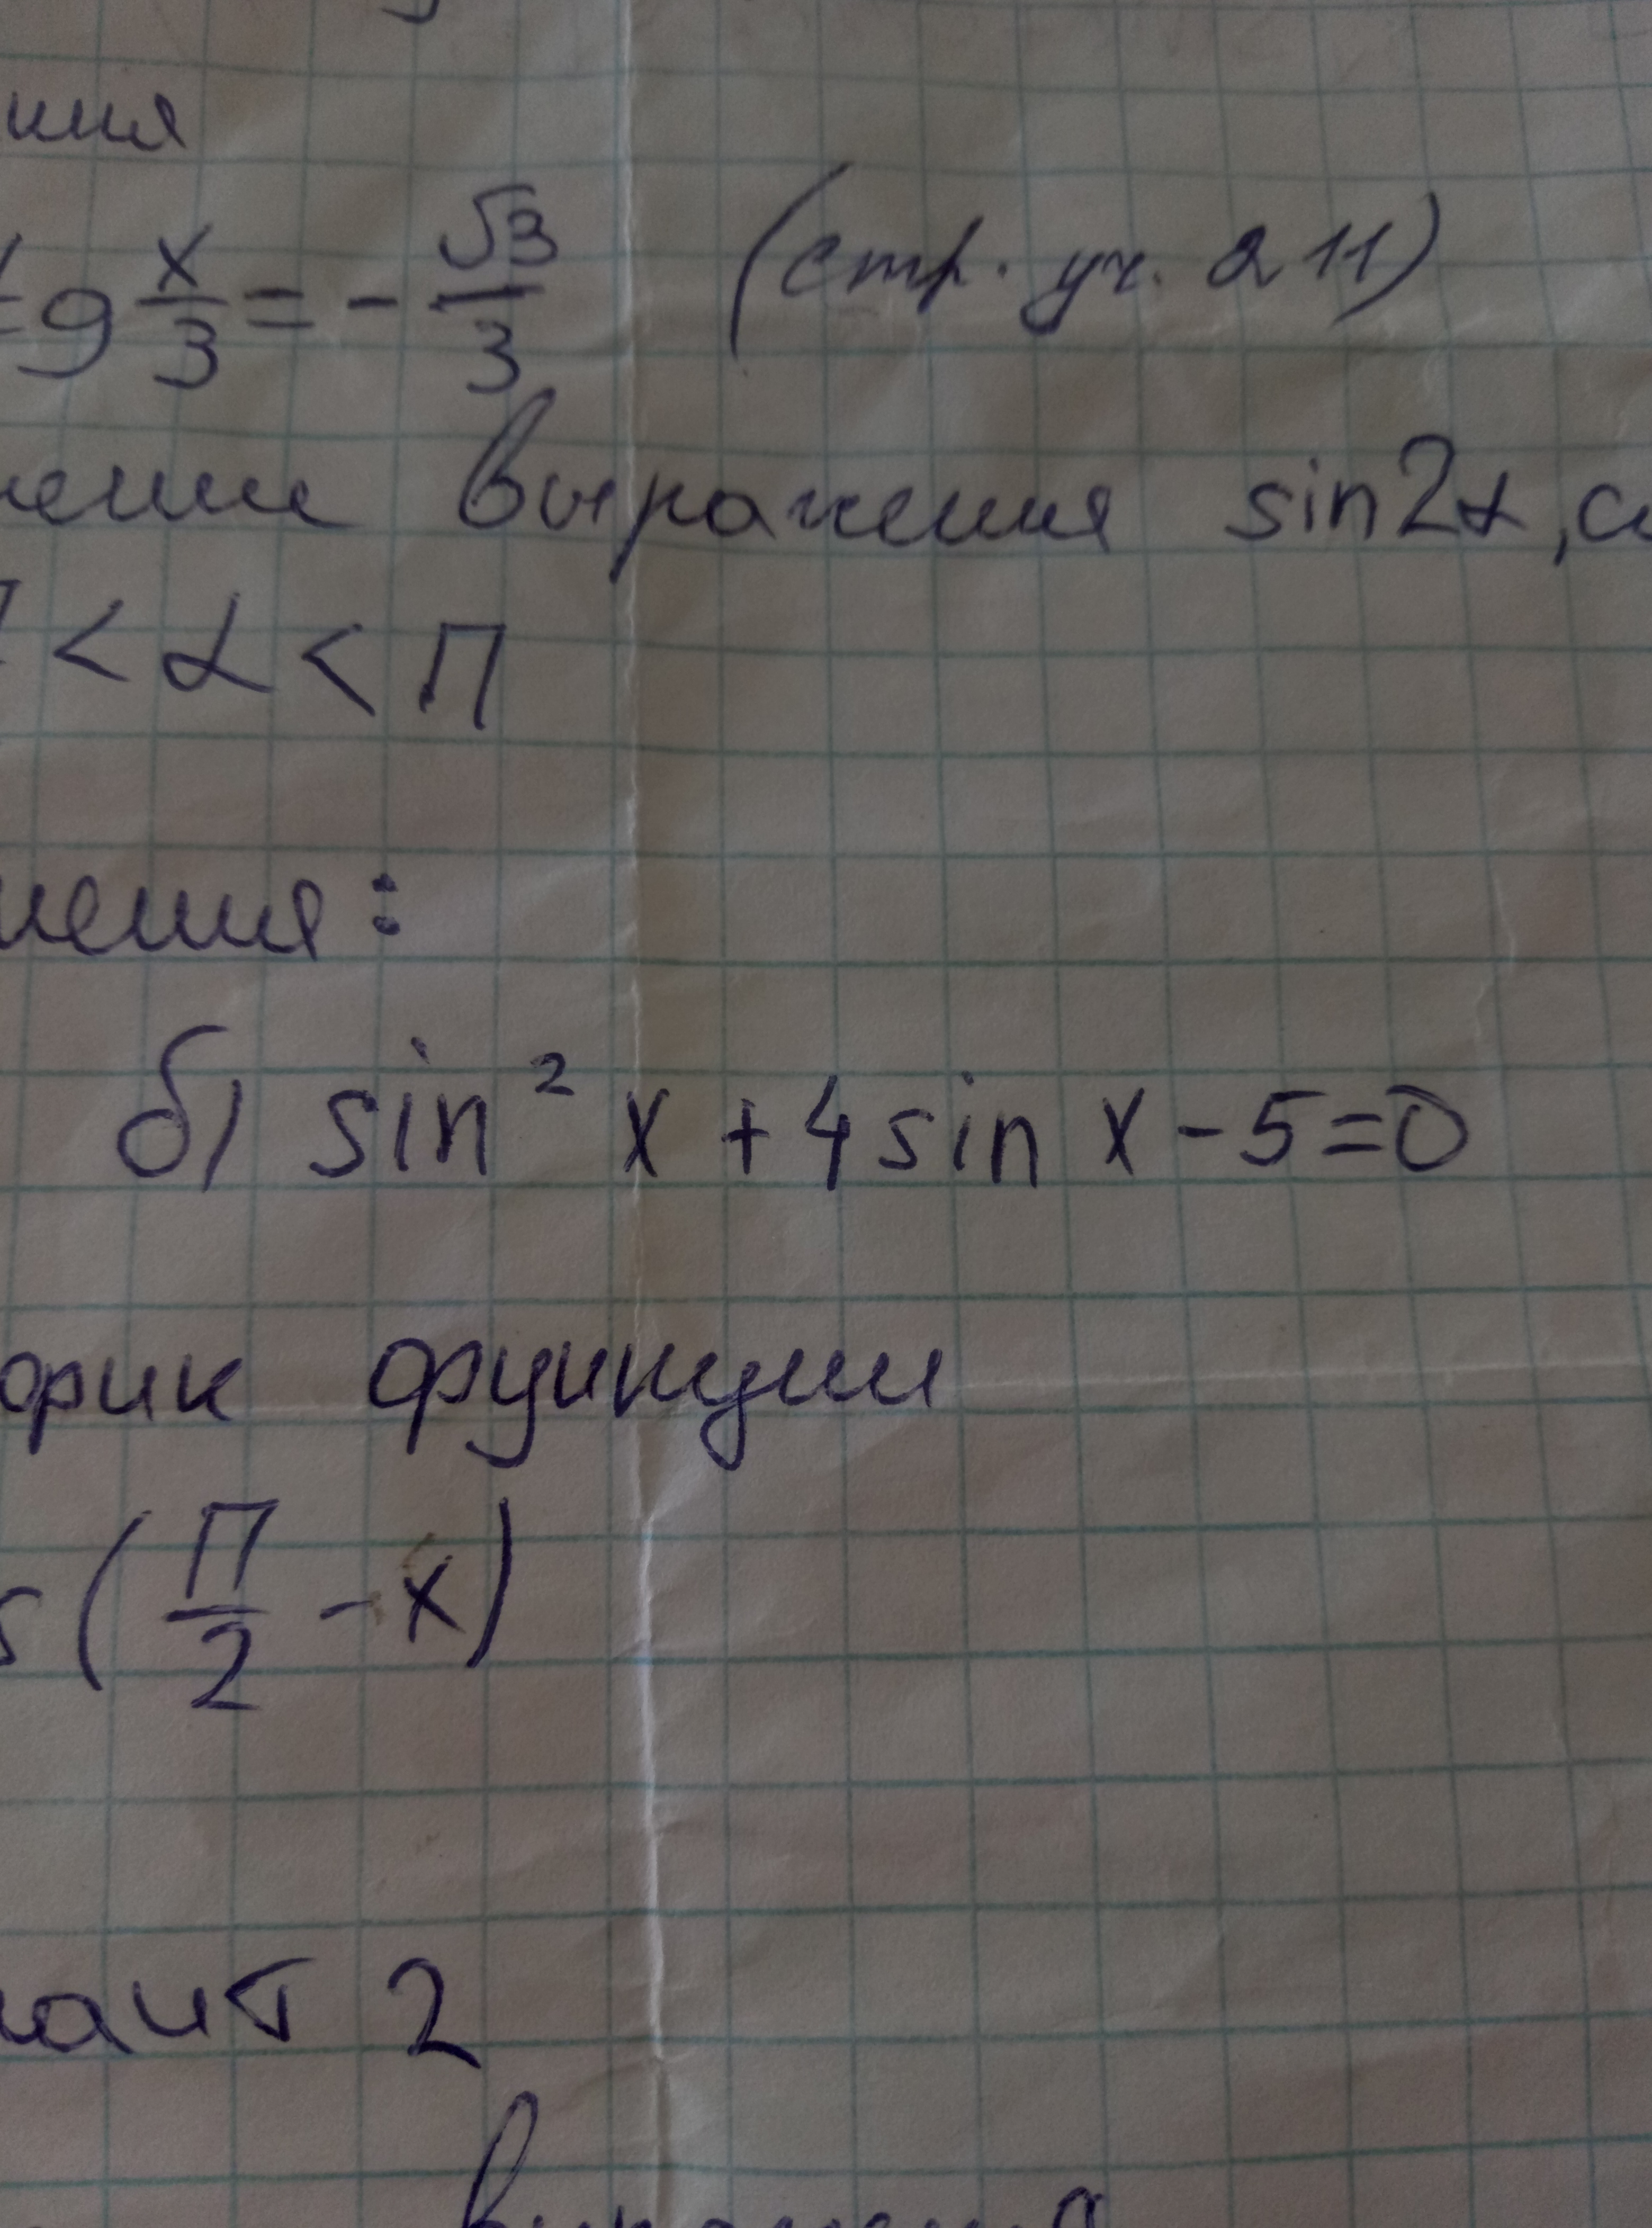 ния
tg x/3 = - √3/3 (стр. уч. 211)
чении выражения sin2α, c
< α < π
нения:
б) sin² x + 4 sin x - 5 = 0
фик функции
s(π/2 - x)
иант 2
выражения